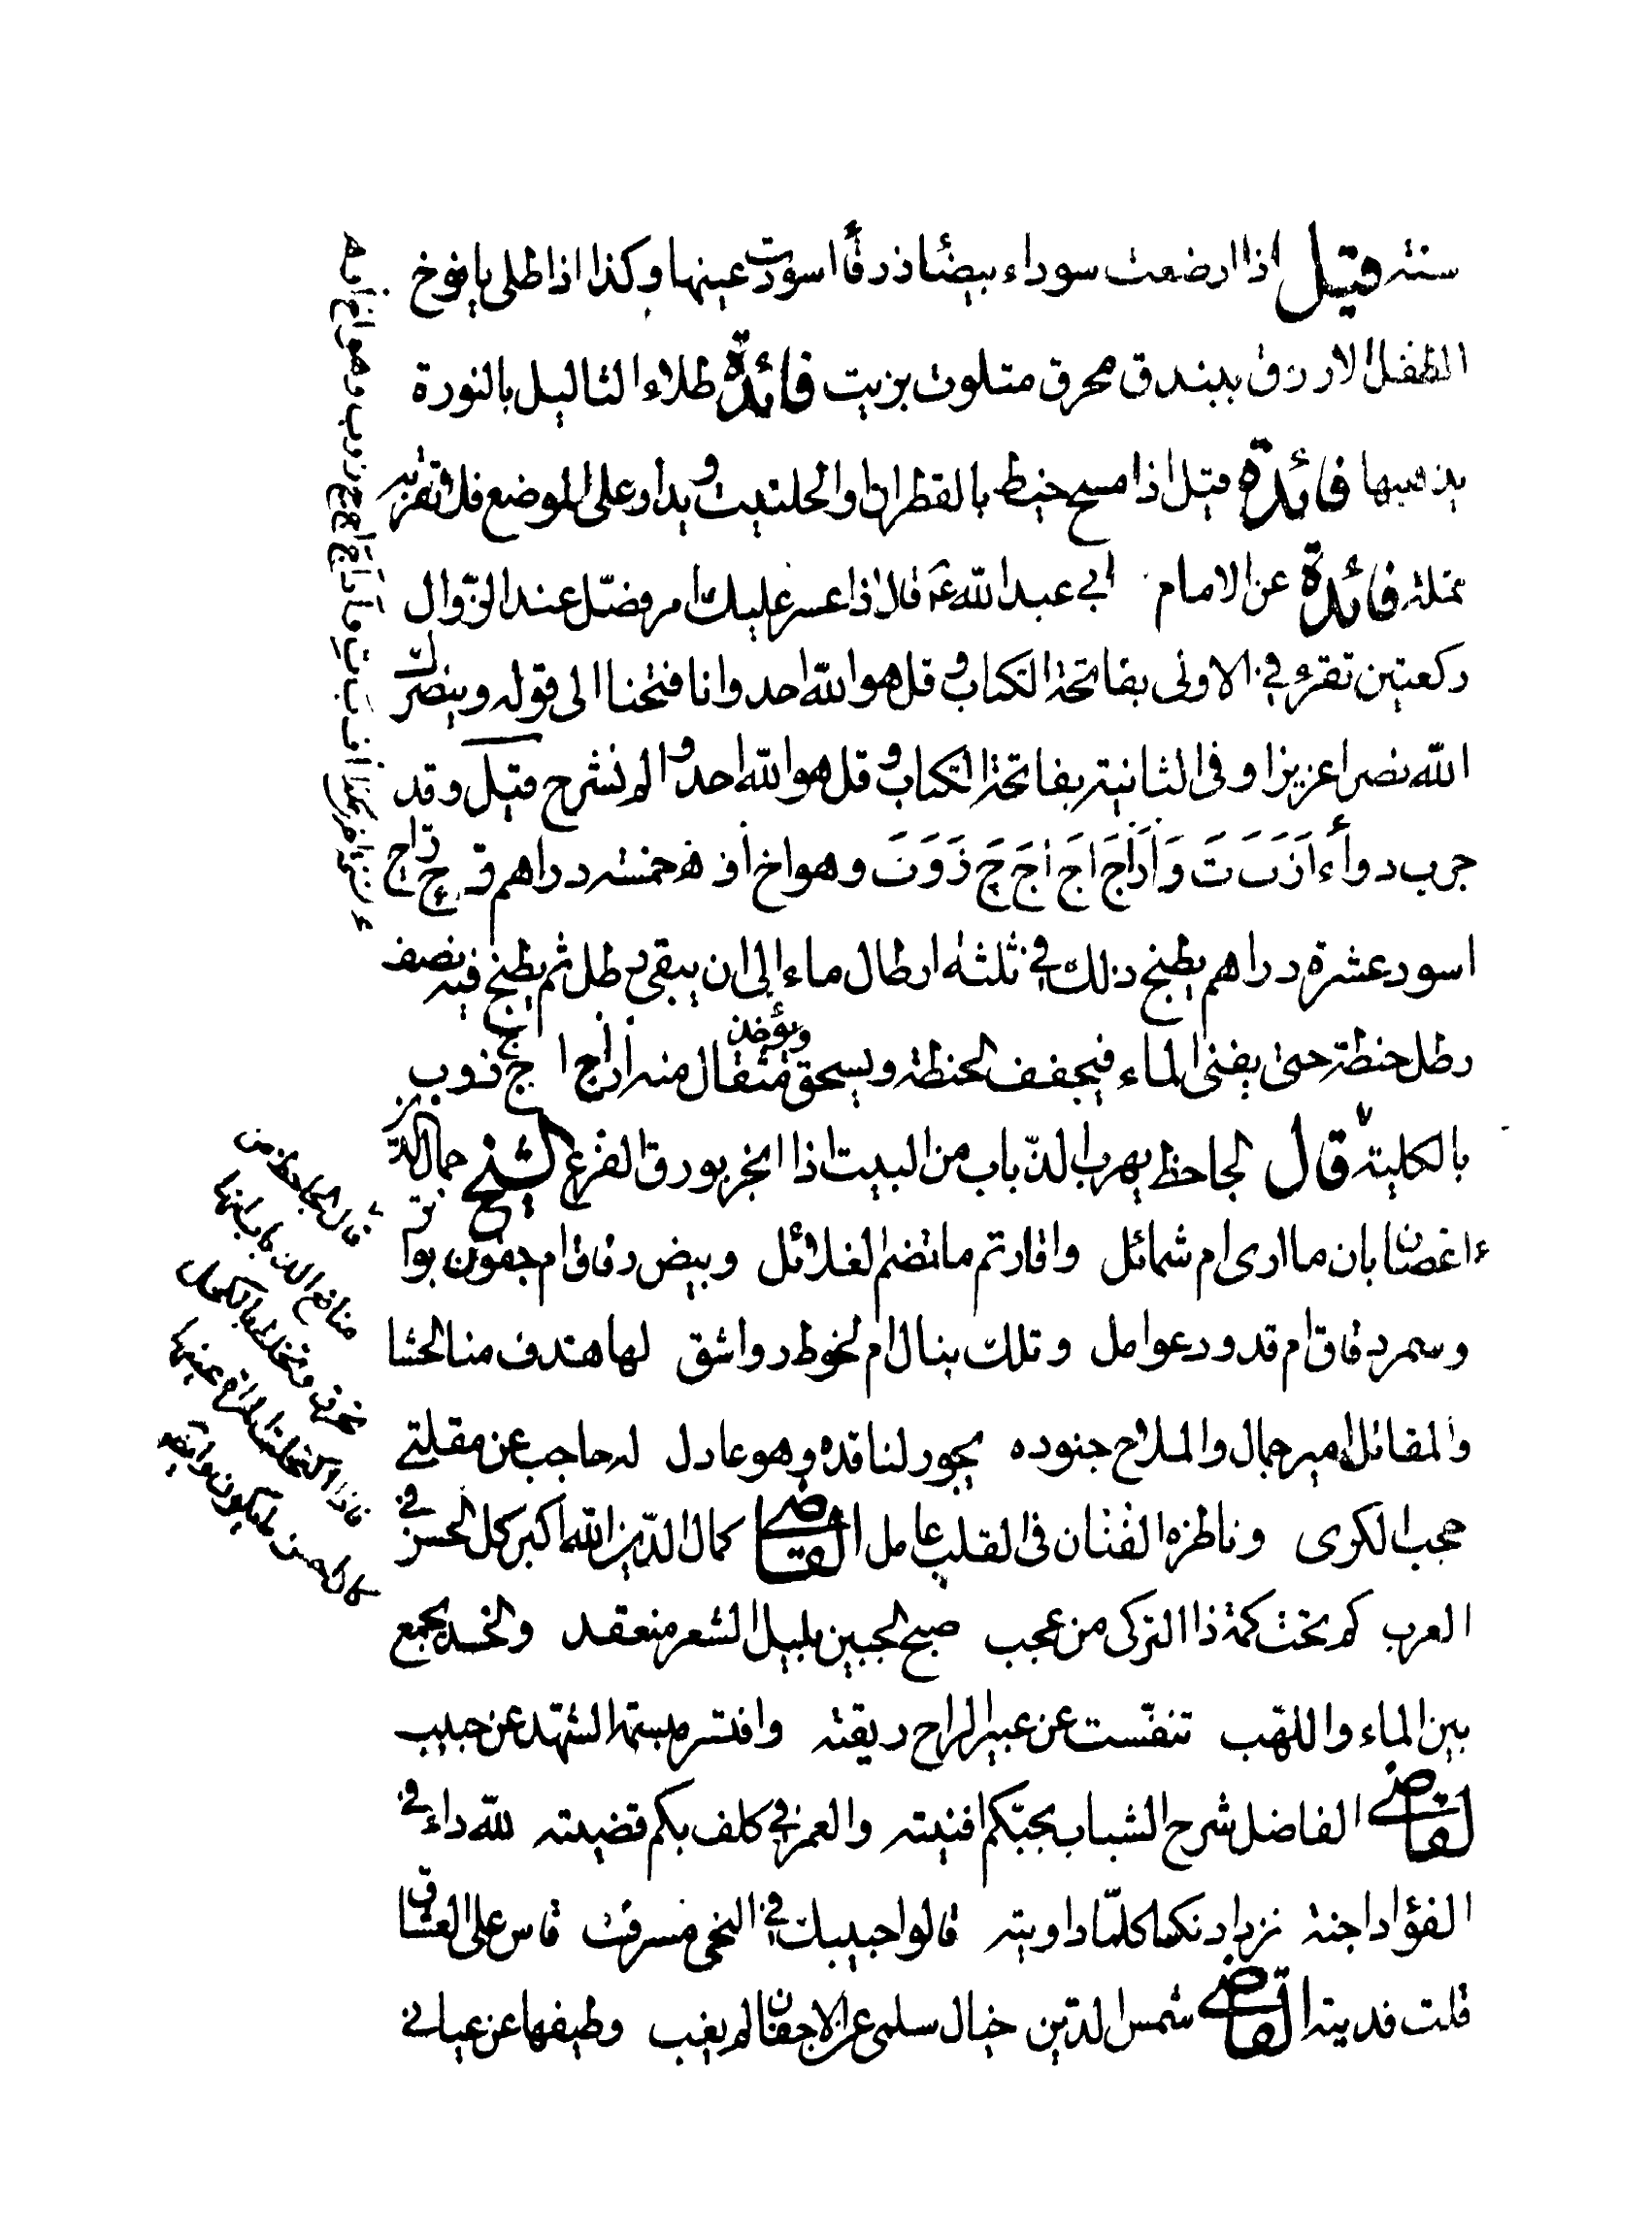 سنته وقيل اذا ارضعت سوداء بيضًا ذرقًا اسودّت عينها وكذا اذا طلى يافوخ
الطفل الازرق ببندق محرق متلوث بزيت فائدة طلاء الثاليل بالنورة
يذهبها فائدة قيل اذا مسح خيط بالقطران او الحلتيت ويدار على الموضع فلا تقربه
نملة فائدة عن الامام ابي عبد الله ع قال اذا عسر عليك امر فصلّ عند الزّوال
ركعتين تقرء في الاولى بفاتحة الكتاب و قل هو الله احد وانا فتحنا الى قوله وينصرك
الله نصرا عزيزا وفى الثانية بفاتحة الكتاب و قل هو الله احد و الم نشرح قيل وقد
جرب دواء وهو اخ اذ خمسة دراهم
اسود عشرة دراهم يطبخ ذلك في ثلثة ارطال ماء الى ان يبقى رطل ثم يطبخ فيه نصف
رطل حنطة حتى يفنى الماء فيجفف الحنطة ويسحق ويؤخذ مثقال منه
بالكلية قال الجاحظ يهرب الذّباب من البيت اذا بخر بورق القرع الشيخ جمال الدّين
اغصان بان ما ارى ام شمائل واقمار تم ما تضم الغلائل وبيض رقاق ام جفون بواتر
وسمر دقاق ام قدود عوامل وتلك نبال ام لحوظ رواشق لها هدف منا الحشا
والمقاتل امير جمال والملاح جنوده يجور لنا قده وهو عادل له حاجب عن مقلتي
حجب الكرى وناظره الفتان فى القلب عامل القاضي كمال الدّين الله اكبر كل الحسن في
العرب كم تحت كمة ذا التركى من عجب صبح الجبين بليل الشعر منعقد والخد يجمع
بين الماء واللهّب تنفّست عن عبير الراح ريقته وافتر مبسمه الشهد عن حبب
القاضي الفاضل شرح الشباب بحبّكم افنيته والعمر في كلف بكم قضيته لله داء في
الفؤاد اجنه يزداد نكسا كلمّا داويته قالوا حبيبك في التجنى مسرف قاس على العشاق
قلت فديته القاضي شمس الدين خيال سلمى عن الاجفان لم يغب وطيفها عن عياني
قال الجاحظ من
منافع الذباب انها
تحرق وتخلط بالكحل